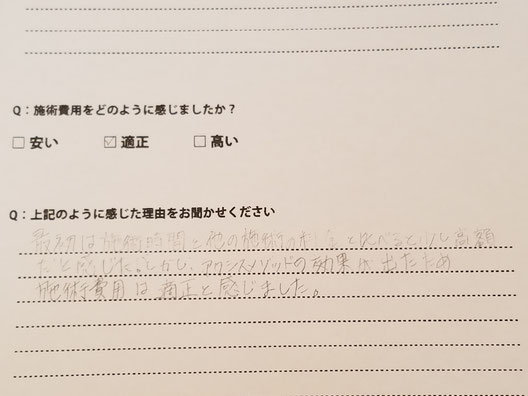 Q：施術費用をどのように感じましたか？
□ 安い ☑ 適正 □ 高い
Q：上記のように感じた理由をお聞かせください
最初は施術時間と他の施術の と比べると少し高額
だと感じた。しかし、アクシスメソッドの効果が出たため
施術費用は適正と感じました。